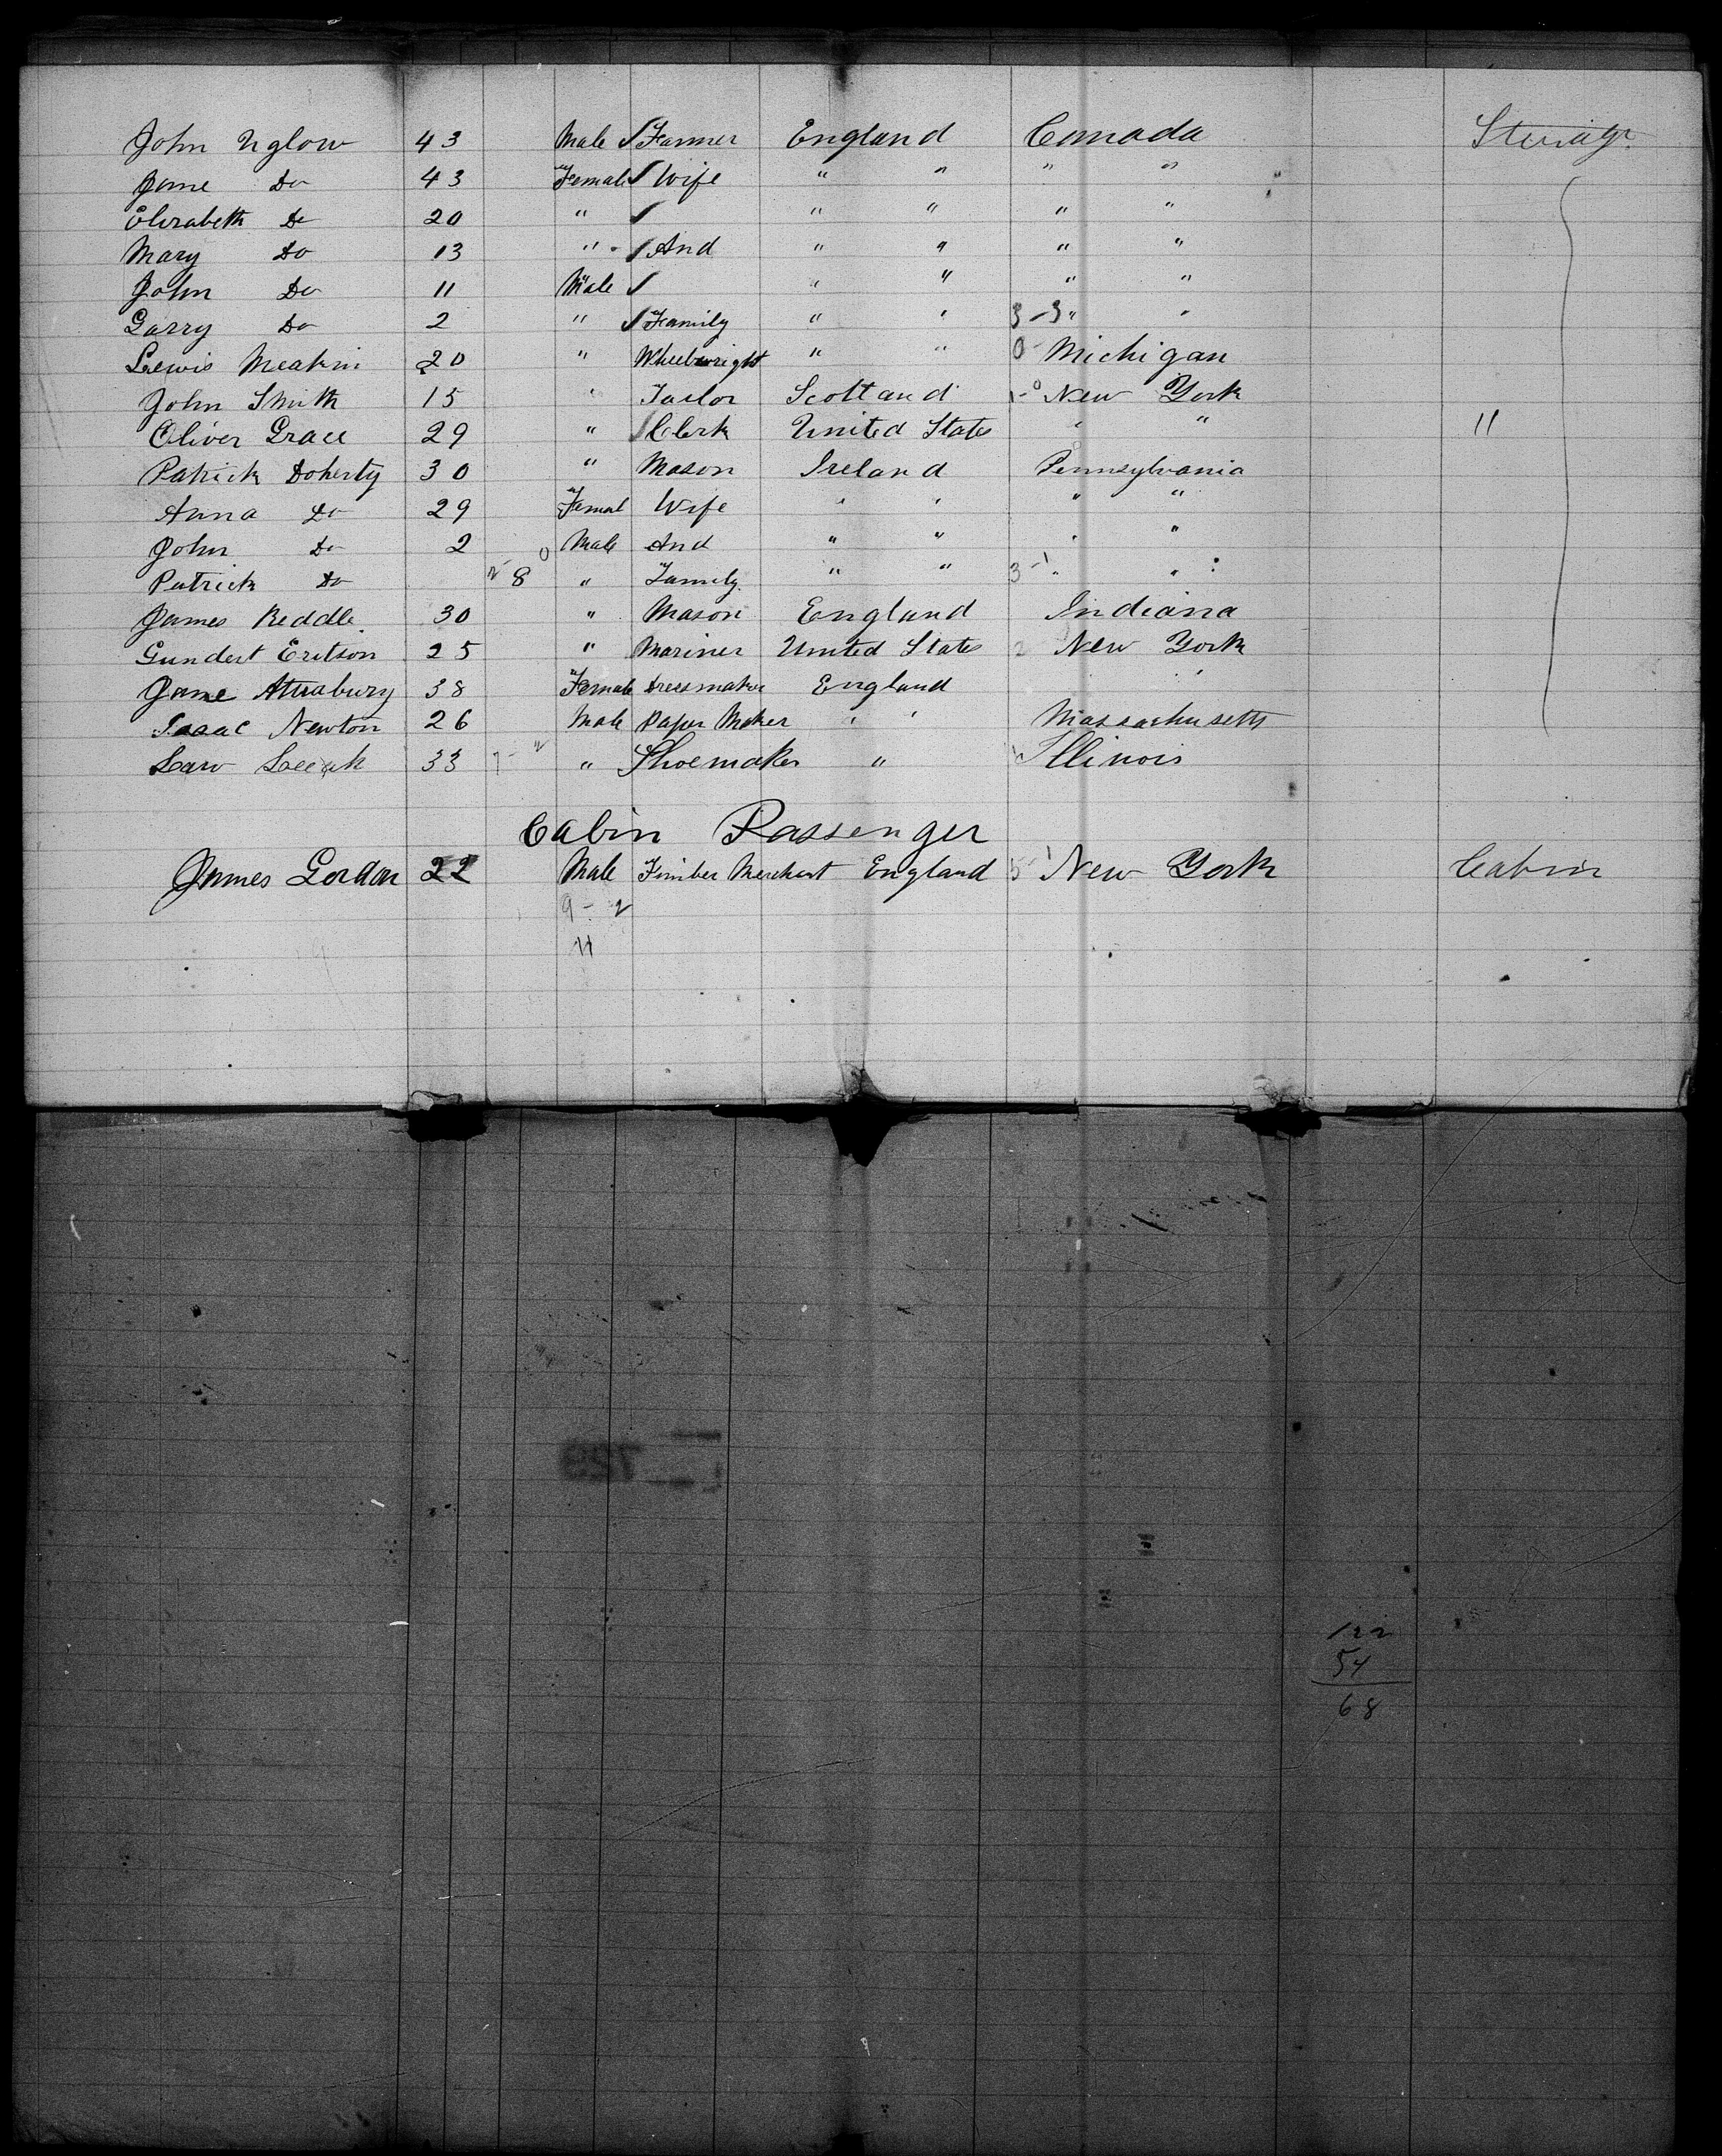 John Uglow 43 Male ✓ Farmer England Canada Steerage
Jane Do 43 Female ✓ Wife " " " "
Elizabeth Do 20 " ✓ " " " "
Mary Do 13 " ✓ And " " " "
John Do 11 Male ✓ " " " "
Garry Do 2 " ✓ Family " " 3-3 " "
Lewis Meakin 20 " Wheelwright " " 0- Michigan
John Smith 15 " Tailor Scotland 1-0 New York
Oliver Grace 29 " Clerk United States " " "
Patrick Doherty 30 " Mason Ireland Pennsylvania
Anna Do 29 Femal Wife " " " "
John Do 2 0 Male And " " " "
Patrick Do 8 " Family " " 3-1 " "
James Reddle 30 " Mason England Indiana
Gundert Eritson 25 " Mariner United States 2 New York
Jane Attrabury 38 Female Dressmaker England "
Isaac Newton 26 Male Paper Maker " " Massachusetts
33 " Shoemaker " Illinois
Cabin Passenger
James Gordon 22 Male Timber Merchant England 5-1 New York Cabin
9-2
11
122
54
68